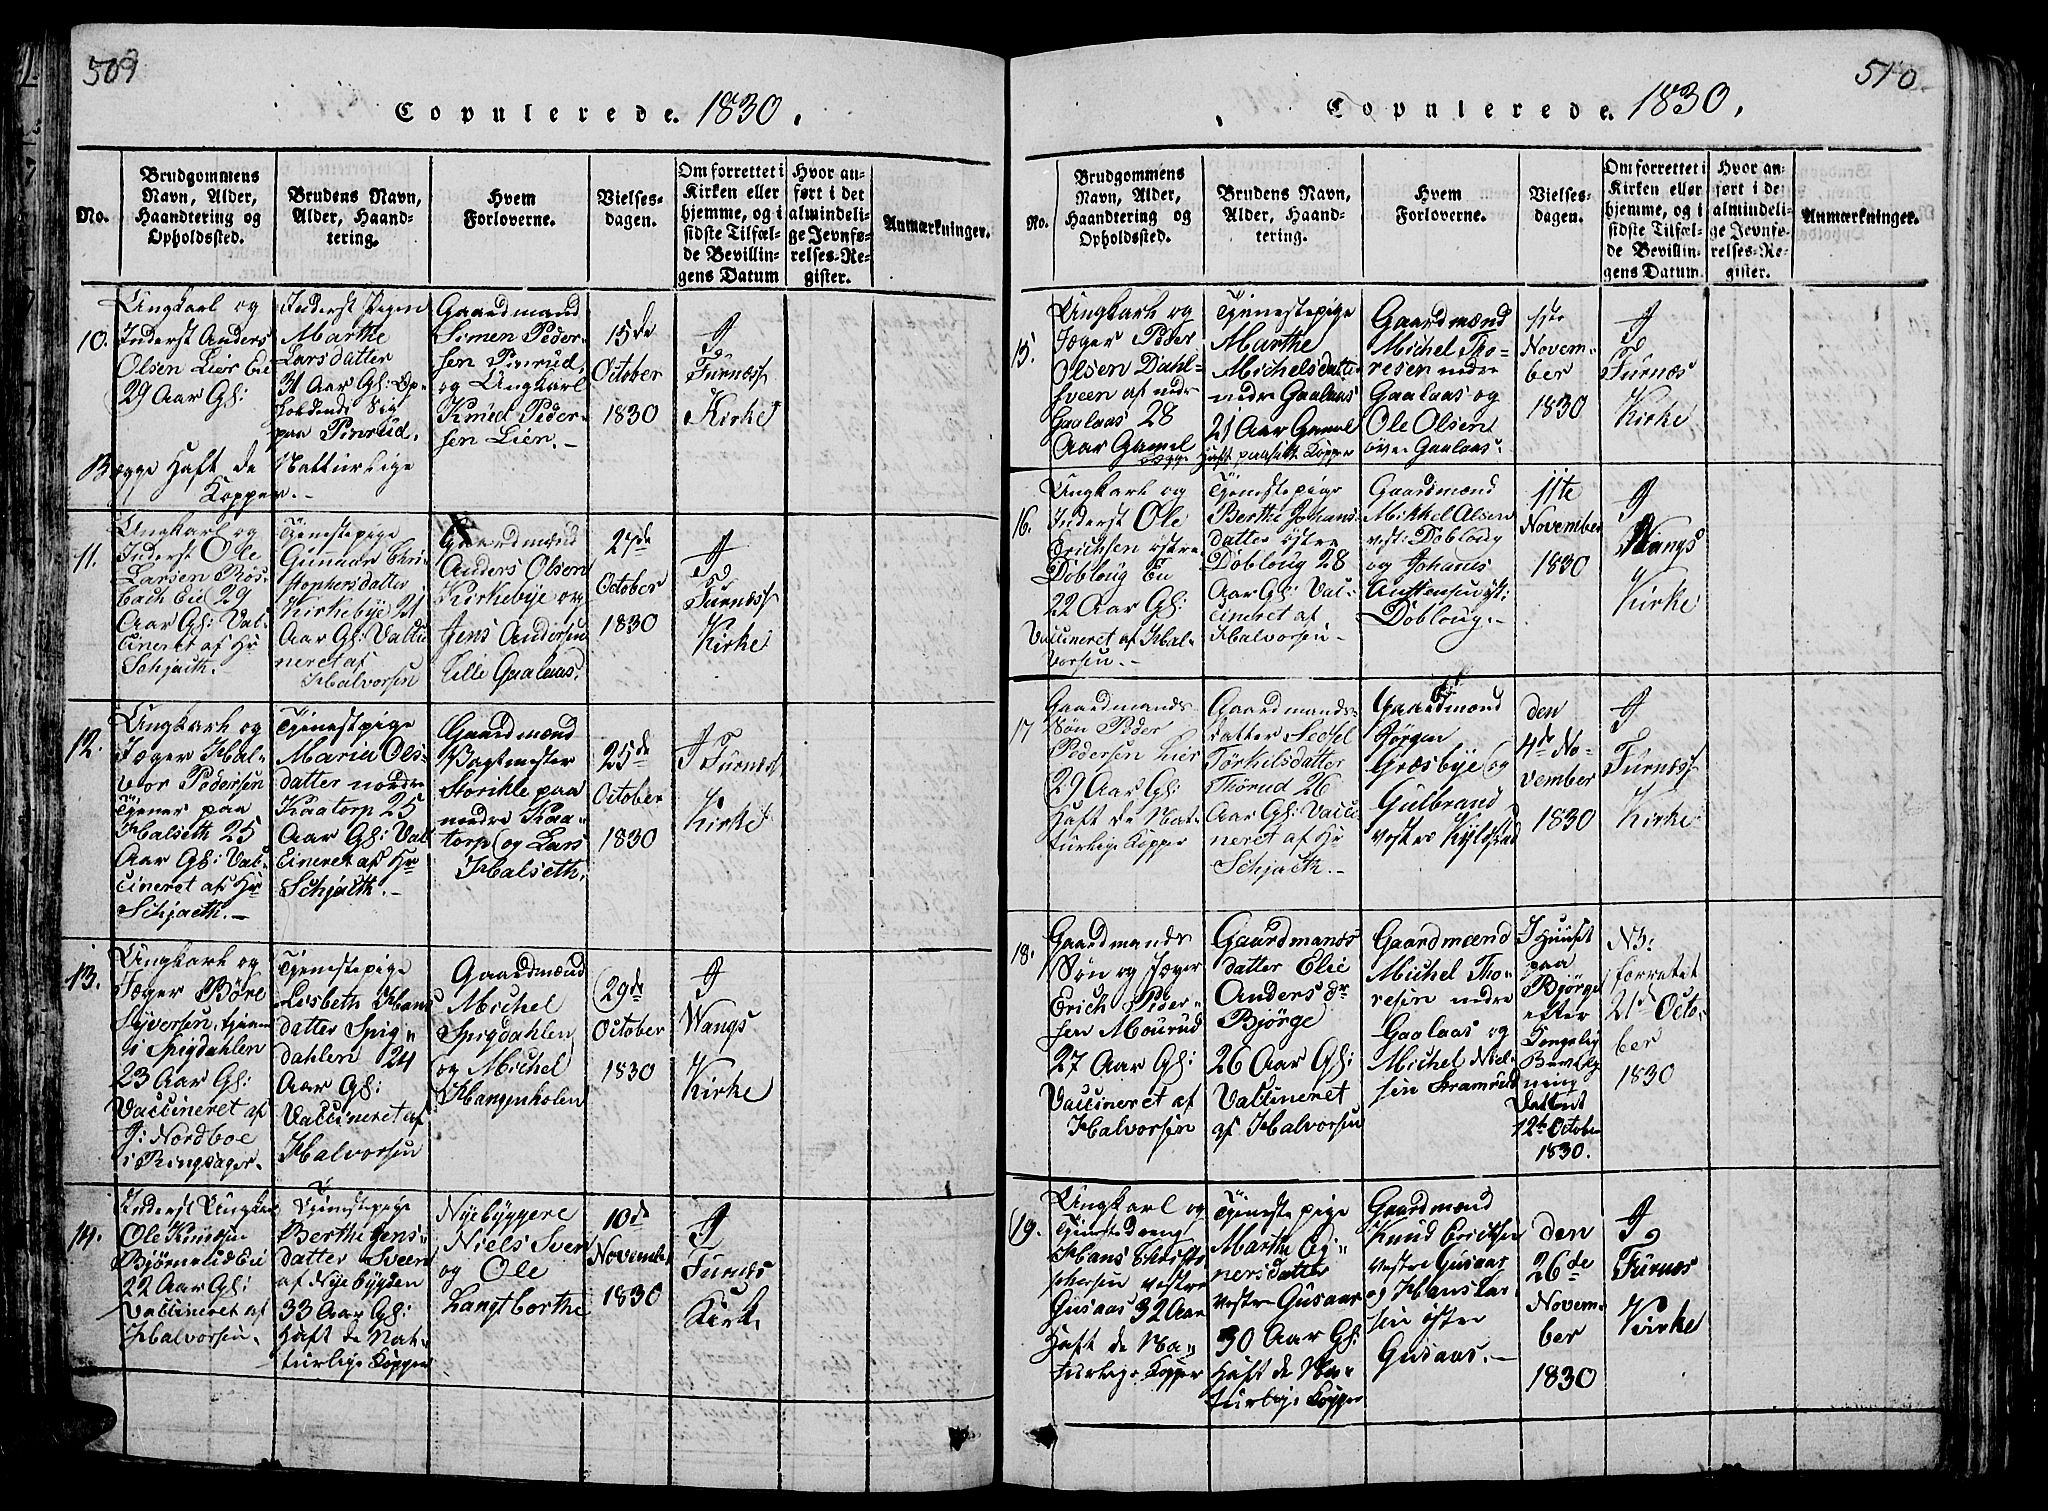 509
Copulerede. 1830.
No.
Brudgommens
Navn, Alder,
Haandtering og
Opholdssted.
Brudens Navn,
Alder, Haand-
tering.
Hvem
Forloverne.
Vielses-
dagen.
Om forrettet i
Kirken eller
hjemme, og i
sidste Tilfæl-
de Bevillin-
gens Datum
Hvor an-
ført i det
almindeli-
ge Jevnfø-
relses-Re-
gister.
Anmærkninger.
10.
Ungkarl og
Inderst Anders
Olsen Lier Eie
29 Aar Gl:
Inderst Pigen
Marthe
Larsdatter
31 Aar Gl: Op-
holdende Sig
paa Pinrud.
Gaardmænd
Simen Peder-
sen Pinrud,
og Ungkarl
Knud Peder-
sen Lien.-
15de
October
1830
I
Furnæss
Kirke
Begge Haft de Natturlige
Kopper.-
11.
Ungkarl og
Inderst Ole
Larsen Ros-
bach Eie 29
Aar Gl: Vac-
cineret af Hr
Schjøth.-
Tjenestepige
Gunnor Chri-
stophersdatter
Kirkebye 31
Aar Gl: Vacci
neret af
Halvorsen
Gaardmænd
Anders Olsen
Kirkebye og
Jens Andersen
Lille Gaalaas.
27de
October
1830
I
Furnæss
Kirke
12.
Ungkarl og
Jæger Hal-
vor Pedersen
Tjener paa
Halseth 25
Aar Gl: Vac-
cineret af Hr
Schjøth.-
Tjenestpige
Maria Ols-
datter nordre
Kaatorp 25
Aar Gl: Vac
cineret af Hr
Schjøth.-
Gaardmænd
Vagtmester
Storihle paa
nordre Kaa-
torp og Lars
Halseth.
25de
October
1830
I Furnæss
Kirke
13.
Ungkarl og
Jæger Børe
Syversen, tjenen
i Spigdahlen
23 Aar Gl:
Vaccineret af
I: Nordboe
i Ringsager.
Tjenestepige
Lisbeth Hans
datter Spig-
dahlen 24
Aar Gl:
Vaccineret af
Halvorsen
Gaardmænd
Michel
Spigdahlen
og Michel
Hangenholen
29de
October
1830
I
Wangs
Kirke
14.
Inderst Ungkar
Ole Knudsen
Bjørnerud Eie
22 Aar Gl:
Vaccineret af
Halvorsen.
Tjenestepige
Berthe Jens-
datter Sveen
af Nyebygden
33 Aar Gl:
Haft de Nat-
turlige Kopper
Nyebyggere
Niels Sven
og Ole
Langtborthe
10de
Novembr
1830
I
Furnæs
Kirk.
510
Copulerede. 1830.
No.
Brudgommens
Navn, Alder,
Haandtering og
Opholdssted.
Brudens Navn,
Alder, Haand-
tering.
Hvem
Forloverne.
Vielses-
dagen.
Om forrettet i
Kirken eller
hjemme, og i
sidste Tilfæl-
de Bevillin-
gens Datum.
Hvor an-
ført i de
almindeli-
ge Jevnfø-
relses-Re-
gister.
Anmærkninger.
15.
Ungkarl og
Jæger Peder
Olsen Dahl-
sveen af nedr
Gaalaas 28
Aar Gamel
Tjenestepige
Marthe
Michelsdatter
nedre Gaalaas
21 Aar Gamel
begge Haft paasatte Kopper
Gaardmænd
Michel Tho-
resen nedre
Gaalaas og
Ole Olsen
øvre Gaalaas.
1ste
Novem-
ber
1830
I
Furnæs
Kirke
16.
Ungkarl og
Inderst Ole
Erichsen østre
Dobloug Eie
22 Aar Gl:
Vaccineret af Hal-
vorsen.-
Tjenestepige
Berthe Johans-
datter østre
Dobloug 28
Aar Gl: Vac-
cineret af
Halvorsen-
Gaardmænd
Mikkel Alsen
vest: Dobloug
og Johanes
Anstensen øst:
Dobloug.-
11te
November
1830
I
Wangs
Kirke
17
Gaardmands
Søn Peder
Pedersen Lier
29 Aar Gl:
Haft de Nat-
turlige Kopper
Gaardmands-
datter Sedsel
Torkelsdatter
Thorud 26
Aar Gl: Vacci
neret af Hr
Schjøth.-
Gaardmænd
Jørgen
Græsbye og
Gulbrand
vestre Kylstad
den
4de No-
vember
1830
I
Furnæss
Kirke
18.
Gaardmands
Søn og Jæger
Erich Peder-
sen Mourud
27 Aar Gl:
Vaccineret af
Halvorsen
Gaardmands
datter Elie
Anders dr
Bjørge
26 Aar Gl:
Vaccineret
af Halvorsen
Gaardmænd
Michel Tho-
resen nedre
Gaalaas og
Michel Niel-
sen Kramrud
I Huuset
paa
Bjørge
efter
Kongelig
Bevilg
ning
Dattert
12te October
1830.
NB:
forretet
21de Octo-
ber
1830
19.
Ungkarl og
Tjenestdreng
Hans Christo
phersen vestre
Gusaas 32 Aar
Haft de Na-
turlige Kopper
Tjenestepige
Marthe Ei-
nersdatter
vestre Gusaas
30 Aar Gl:
Haft de Na-
turlige Kopper
Gaardmænd
Knud Erichsen
vestre Gusaas
og Hans Lar-
sen østre
Gusaas.-
den
26de
Novem-
ber
1830
I
Furnæs
Kirke